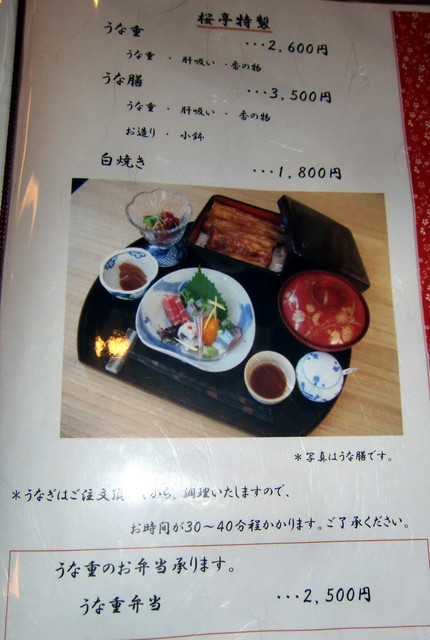 桜亭特製
うな重 ･･･2,600円
うな重 ・ 肝吸い ・香の物
うな膳 ･･･3,500円
うな重 ・ 肝吸い ・ 香の物
お造り ・ 小鉢
白焼き ･･･1,800円
＊写真はうな膳です。
＊うなぎはご注文頂 から、調理いたしますので、
お時間が30〜40分程かかります。ご了承ください。
うな重のお弁当承ります。
うな重弁当 ･･･2,500円